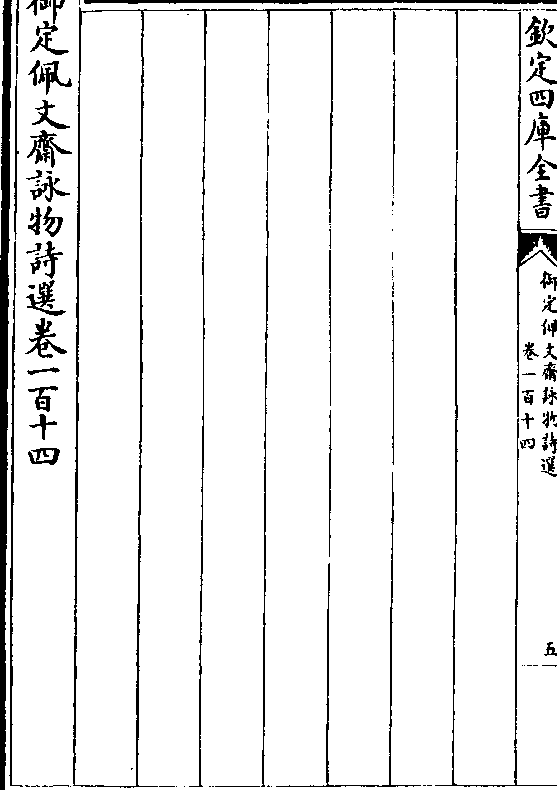 欽定四庫全書
御定佩文齋詠物詩選
卷一百十四
五
御定佩文齋詠物詩選卷一百十四